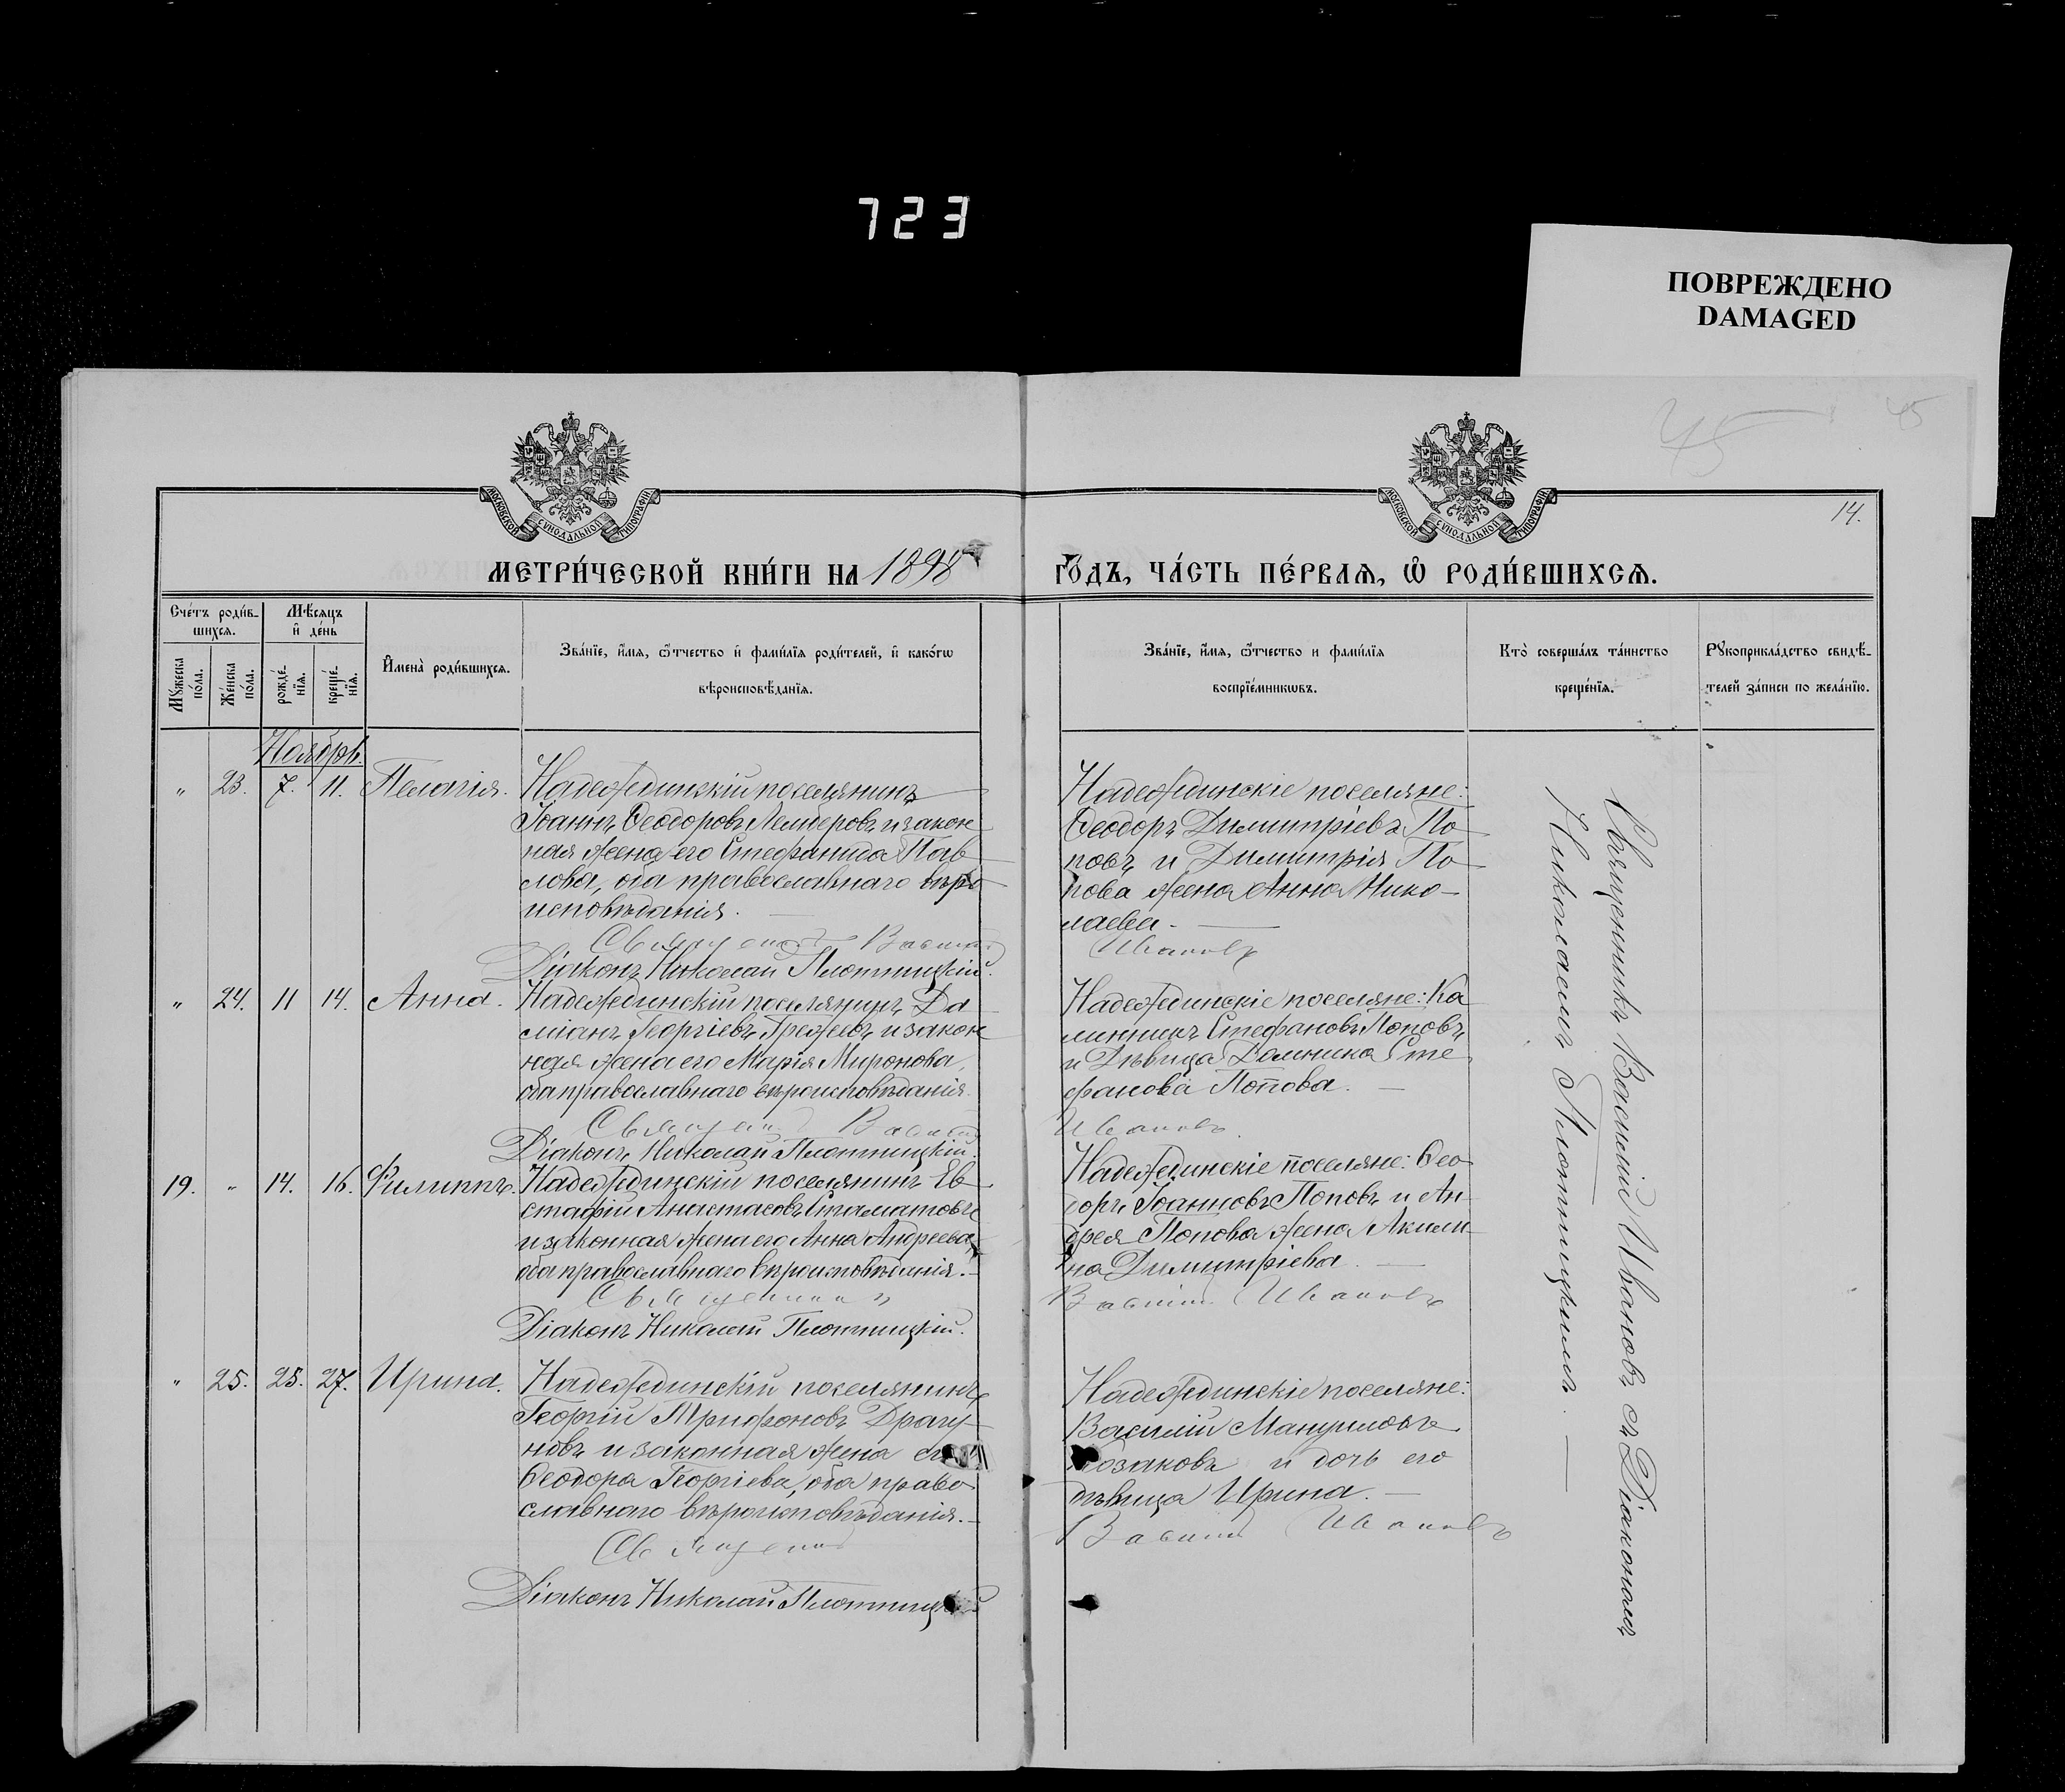 723
ПОВРЕЖДЕНО
DAMAGED
45
45
МОСКОВСКОЙ СѴНОДАЛЬНОЙ ТИПОГРАФІИ
МОСКОВСКОЙ СѴНОДАЛЬНОЙ ТИПОГРАФІИ
14.
МЕТРИ́ЧЕСКОЙ КНИ́ГИ НА 1898
ГО́ДЪ, ЧА́СТЬ ПЕ́РВАѦ, Ѡ҆ РОДИ́ВШИХСѦ.
Сче́тъ роди́в-
шихсѧ.
Мѣ́сѧцъ
и҆ де́нь
Мꙋ́жеска
по́ла.
Же́нска
по́ла.
рожде́-
нїѧ.
креще́-
нїѧ.
И҆мена̀ роди́вшихсѧ.
Зва́нїе, и҆́мѧ, ѻ҆́тчество и҆ фами́лїѧ роди́телей, и҆ како́гѡ
вѣроисповѣ́данїѧ.
Зва́нїе, и҆́мѧ, ѻ҆́тчество и фами́лїѧ
воспрїе́мникѡвъ.
Кто̀ соверша́лъ та́инство
креще́нїѧ.
Рꙋкоприкла́дство свидѣ́-
телей за́писи по жела́нїю.
Ноябрь.
" 23. 7. 11. Пелагія.
Надеждинскій поселянинъ
Іоаннъ Ѳеодоровъ и закон
ная жена его Стефанида Пав
лова, оба православнаго вѣро
исповѣданія.
Священникъ Василій
Діаконъ Николай Плотницкій.
Надеждинскіе поселяне:
Ѳеодоръ Димитріевъ По
повъ и Димитрія По
пова жена Анна Нико-
лаева.
Ивановъ
" 24. 11 14. Анна.
Надеждинскій поселянинъ Да
міанъ Георгіевъ и закон
ная жена его Марія Миронова,
оба православнаго вѣроисповѣданія.
Священ. Василій
Діаконъ Николай Плотницкій.
Надеждинскіе поселяне: Ка
линникъ Стефановъ Поповъ
и Дѣвица Домника Сте
фанова Попова.
Ивановъ
19. " 14. 16. Филиппъ.
Надеждинскій поселянинъ Ев
стафій Анастасовъ Стаматовъ
и законная жена его Анна Андреева,
оба православнаго вѣроисповѣданія.
Священникъ
Діаконъ Николай Плотницкій.
Надеждинскіе поселяне: Ѳео
доръ Іоанновъ Поповъ и Ан-
дрея Попова жена Акили-
на Димитріева.
Василій Ивановъ
" 25. 25. 27. Ирина.
Надеждинскій поселянинъ
Георгій Трифоновъ Драгу-
новъ и законная жена его
Ѳеодора Георгіева, оба право
славнаго вѣроисповѣданія.
Священникъ
Діаконъ Николай Плотницкій
Надеждинскіе поселяне:
Василій Мануиловъ
Козаковъ и дочь его
дѣвица Ирина.
Василій Ивановъ
Священникъ Василій Ивановъ съ Діакономъ
Николаемъ Плотницкимъ.